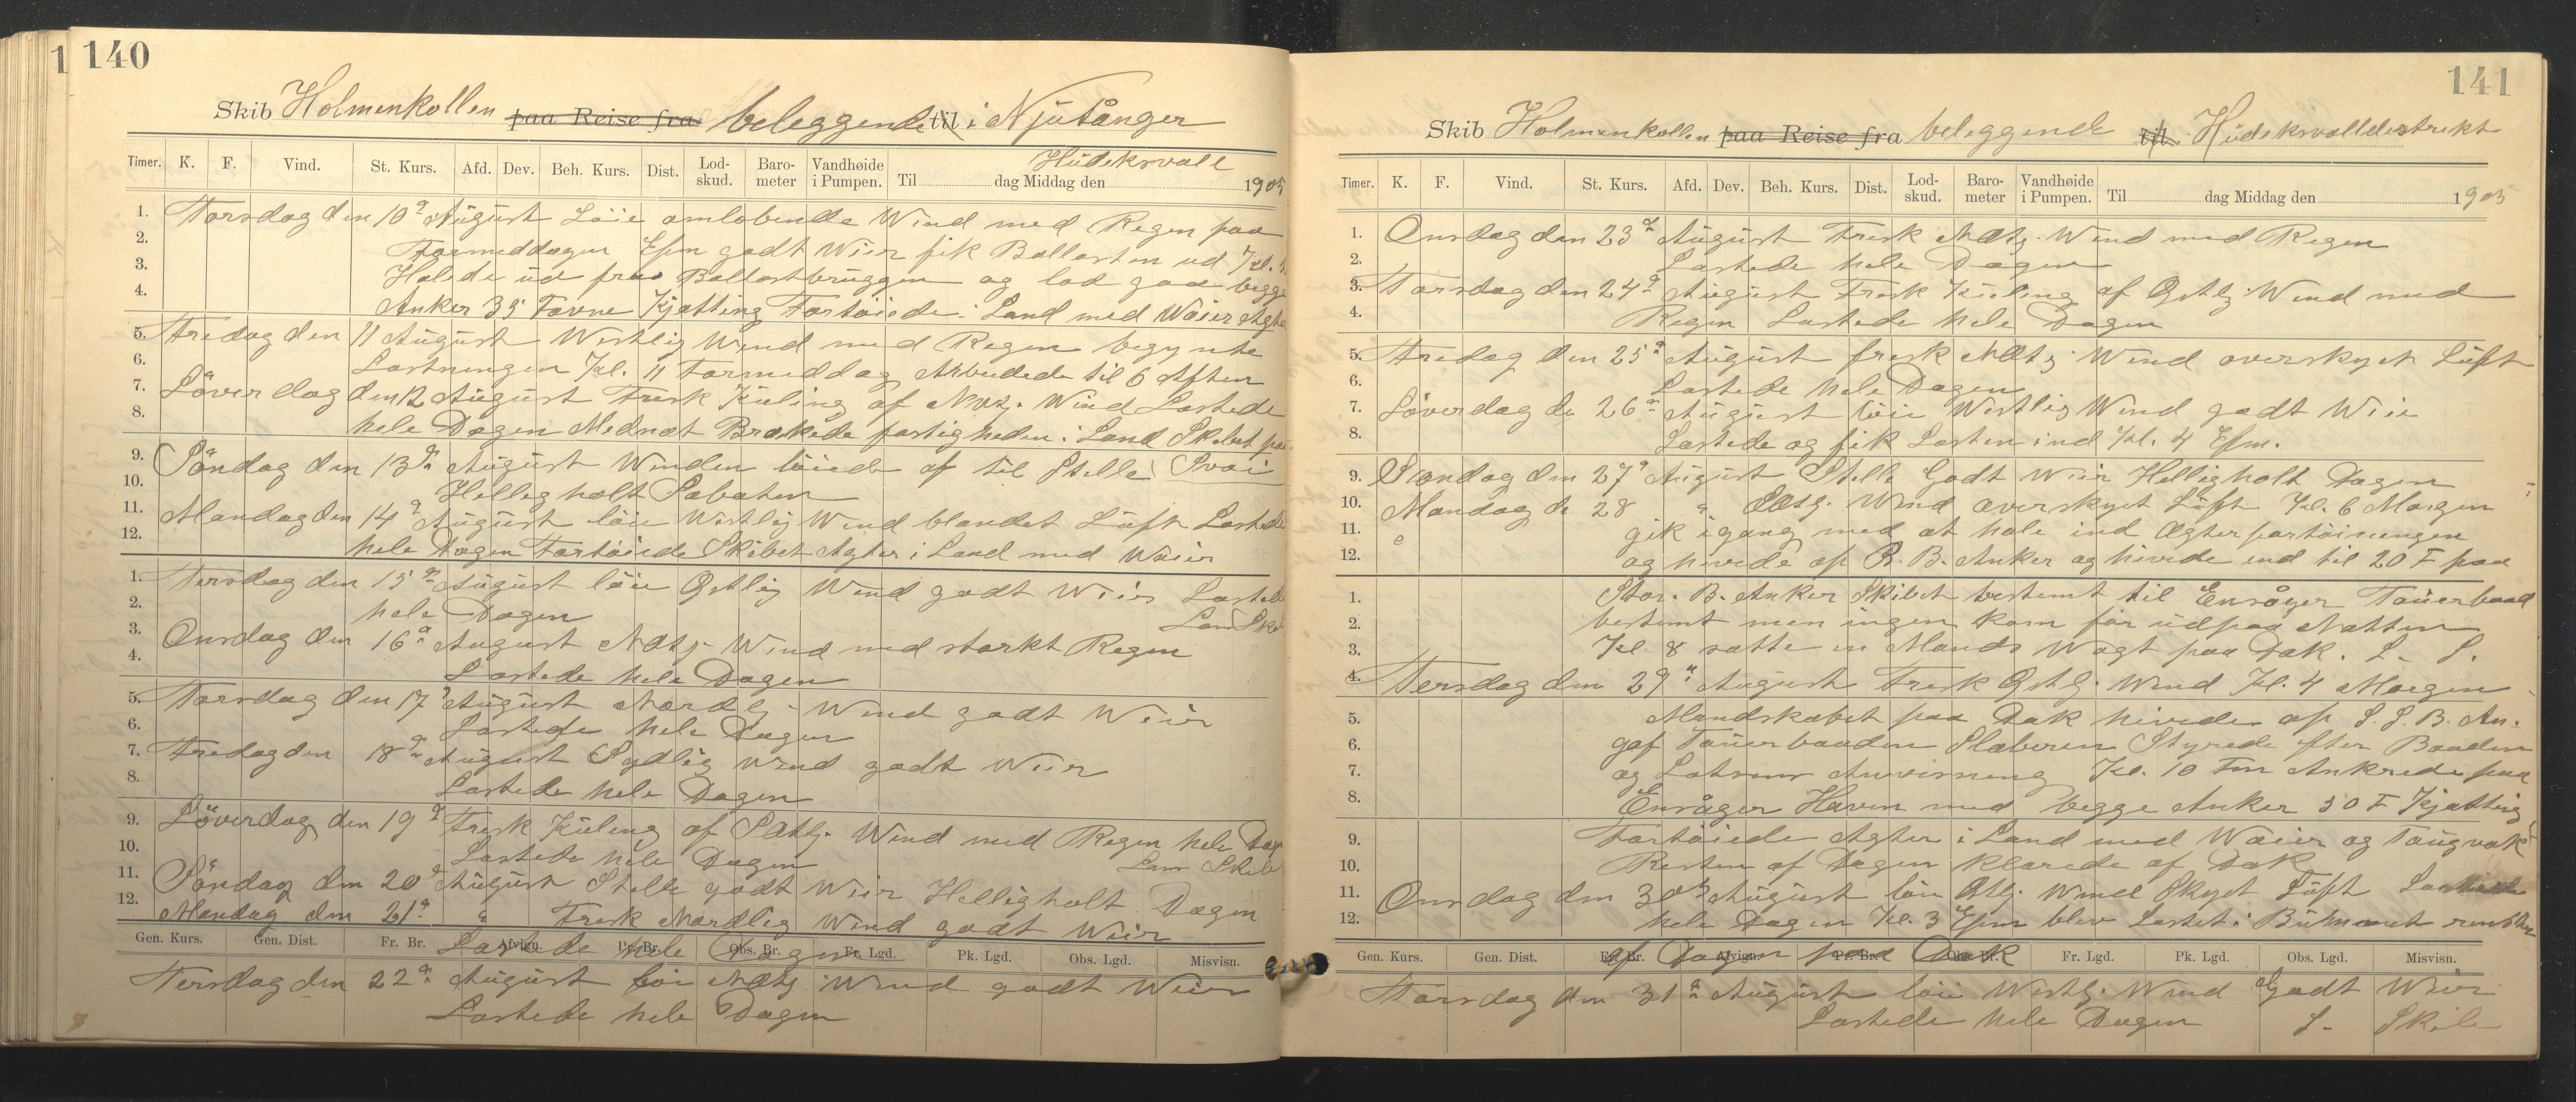 140
Skib Holmenkollen paa Reise fra beleggende til i Njutånger
Hudeksvall
Timer. K. F. Vind. St. Kurs. Afd. Dev. Beh. Kurs. Dist. Lod-skud. Baro-meter Vandhøide i Pumpen. Til dag Middag den 1905
1. Torsdag den 10de August Löie omlobende Wind med Regen paa
2. Formeddagen Efm godt Wëir fik Ballasten ud Kl.
3. Halede ud fra Ballastbruggen og lod gaa begge
4. Anker 35 Favne Kjætting Fortöiede i Land med Waier Agter
5. Fredag den 11 August Westlig Wind med Regen begynte
6. Lastningen Kl. 11 Formeddag Arbeidede til 6 Aften
7. Löverdag den 12 August Fresk Kuling af NW.lg. Wind Lastede
8. hele Dagen Mednat Brækede fastigheden i Land Skibet paa
9. Söndag den 13de August Winden löiede af til Stelle Svai
10. Hellegholt Sabaten
11. Mandag den 14de August löie Westlig Wind blandet Luft Lastede
12. hele Dagen Fortöiede Skibet Agter i Land med Waier
1. Tersdag den 15de August löie Ostlig Wind godt Wëir Lastede
2. hele Dagen
3. Onsdag den 16de August NOtlg. Wind med starkt Regen
4. Lastede hele Dagen
5. Torsdag den 17de August Nordlg. Wind godt Wëir
6. Lastede hele Dagen
7. Fredag den 18de August Sydlig Wind godt Weir
8. Lastede hele Dagen
9. Löverdag den 19de Fresk Kuling af SOtlg. Wind med Regen hele Dag
10. Lastede hele Dagen
11. Söndag den 20de August Stelle godt Weir Helligholt Dagen
12. Mandag den 21de " Fresk Nordlig Wind godt Weir
Gen. Kurs. Gen. Dist. Fr. Br. Afvign. Pr. Br. Obs. Br. Fr. Lgd. Pk. Lgd. Obs. Lgd. Misvisn.
Lastede hele Dagen
Tersdag den 22de August löi NOtlg Wind godt Weir
Lastede hele Dagen
141
Skib Holmenkollen paa Reise fra beleggende til i Hudeksvalldestrekt
Timer. K. F. Vind. St. Kurs. Afd. Dev. Beh. Kurs. Dist. Lod-skud. Baro-meter Vandhøide i Pumpen. Til dag Middag den 1905
1. Onsdag den 23de August Fresk NOtlg. Wind med Regen
2. Lastede hele Dagen
3. Torsdag den 24de August Fresk Kuling af Ostlg. Wind med
4. Regen Lastede hele Dagen
5. Fredag den 25de August fresk NOtlg Wind overskyet Luft
6. Lastede hele Dagen
7. Löverdag de 26de August löie Westlig Wind godt Wëir
8. Lastede og fik Lasten ind Kl. 4 Efm.
9. Söndag den 27de August Stelle Godt Weir Helligholt Dagen
10. Mandag de 28 " SOtlg. Wind overskyet Luft Kl. 6 Morgen
11. gik igang med at hale ind Agterfortöiningen
12. og hivede op B. B. Anker og hivede ind til 20 F paa
1. Stor. B. Anker Skibet bestemt til Enånger Touerbaad
2. bestemt men ingen kom för udpaa Natten
3. Kl. 8 satte en Mands Wagt paa Dæk. L. S.
4. Tersdag den 29de August Fresk Ostlg. Wind Kl. 4 Morgen
5. Mandskabet paa Dæk hivede op S. B. An.
6. gaf Touerbaaden Slæberen Styrede efter Baaden
7. og Lotsens Anvisning Kl. 10 Fm Ankrede paa
8. Enånger Havn med begge Anker 30 F Kjætting
9. Fortöiede Agter i Land med Waier og Tougværk
10. Resten af Dagen klarede af Dæk
11. Onsdag den 30te August löie Ostlg. Wind Skyet Luft Lastede
12. hele Dagen Kl. 3 Efm blev Lastet i Rummet resten
Gen. Kurs. Gen. Dist. Fr. Br. Afvign. Pr. Br. Obs. Br. Fr. Lgd. Pk. Lgd. Obs. Lgd. Misvisn.
af Dagen paa Dæk
Torsdag den 31de August löie Westlg. Wind Godt Weir
Lastede hele Dagen